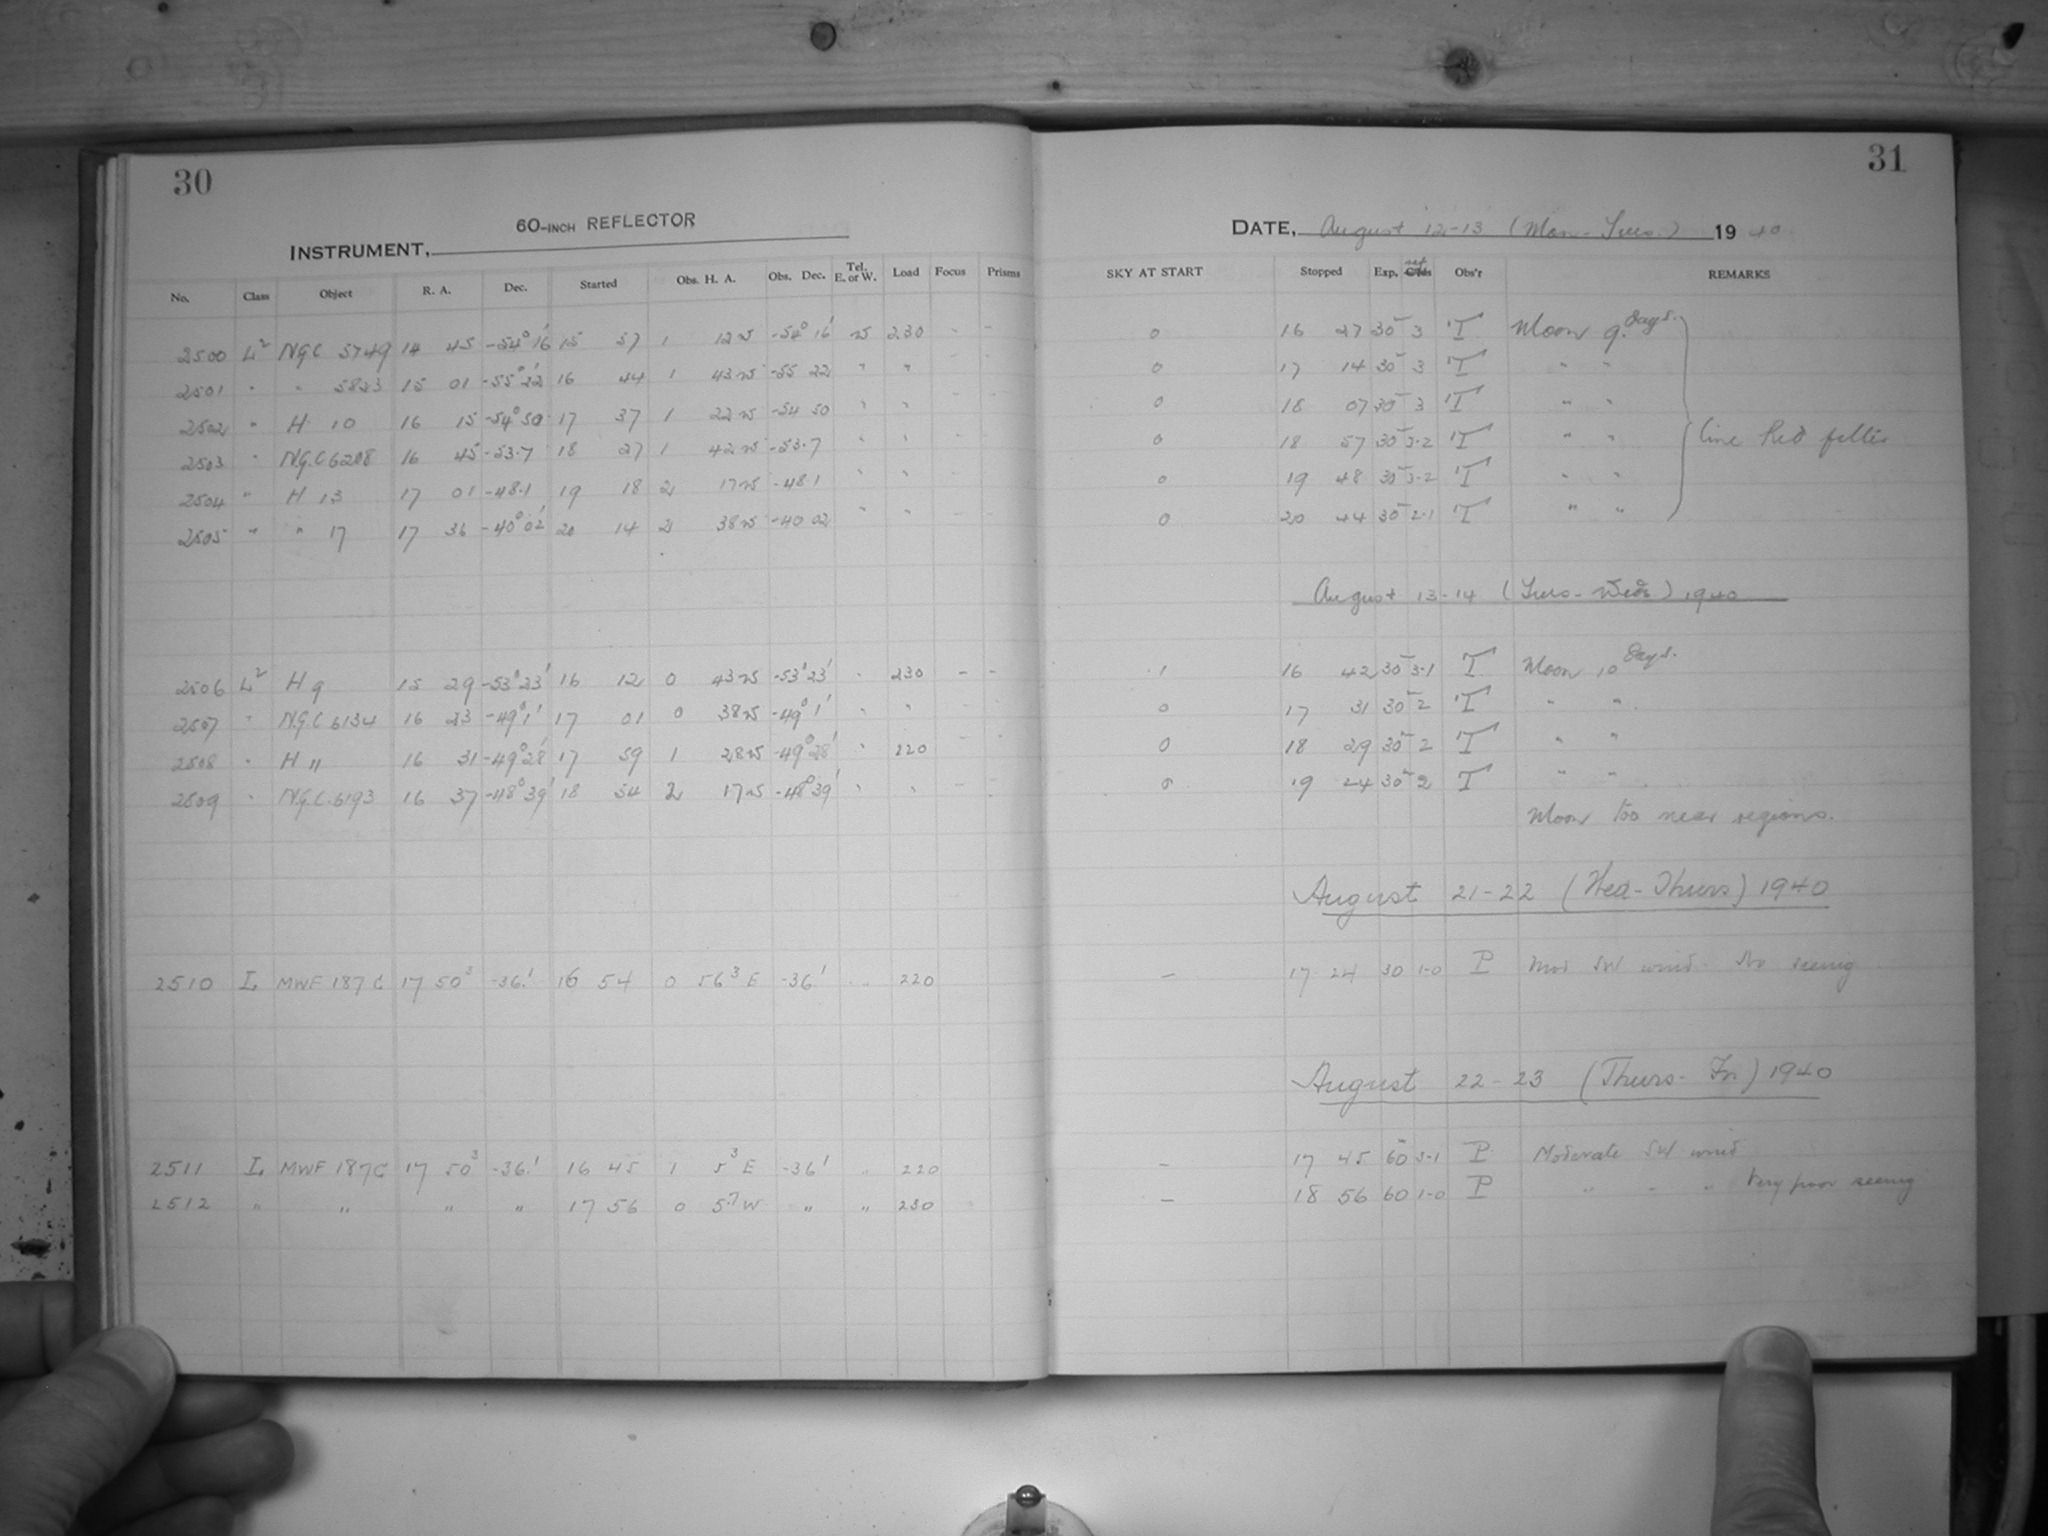 30
60-INCH REFLECTOR
INSTRUMENT,
No. Class Object R. A. Dec. Started Obs. H. A. Obs. Dec. Tel. E. or W. Load Focus Prisms
2500 L² NGC 5749 14 45 -54°16' 15 57 1 12 W -54°16' W 230 - -
2501 " " 5823 15 01 -55°22' 16 44 1 43 W -55 22 " " - -
2502 " H 10 16 15 -54°50' 17 37 1 22 W -54 50 " " - -
2503 " N.G.C 6208 16 45 -53.7 18 27 1 42 W -53.7 " " - -
2504 " H 13 17 01 -48.1 19 18 2 17 W -48.1 " " - -
2505 " " 17 17 36 -40°02' 20 14 2 38 W -40 02 " " - -
2506 L² H 9 15 29 -53°23' 16 12 0 43 W -53°23' " 230 - -
2507 " N.G.C. 6134 16 23 -49°1' 17 01 0 38 W -49°1' " " - -
2508 " H 11 16 31 -49°28' 17 59 1 28 W -49°28' " 220 - -
2509 " N.G.C. 6193 16 37 -48°39' 18 54 2 17 W -48°39' " " - -
2510 L MWF 187C 17 50³ -36.1 16 54 0 56³ E -36.1 " 220
2511 L MWF 187C 17 50³ -36.1 16 45 1 5³ E -36.1 " 220
2512 " " " " 17 56 0 5.7 W " " 230
31
DATE, August 12-13 (Mon-Tues.) 1940
SKY AT START Stopped Exp. Obs'r REMARKS
0 16 27 30 3 T Moon 9 days.
0 17 14 30 3 T " "
0 18 07 30 3 T " "
0 18 57 30 3-2 T " " Cine Red filter
0 19 48 30 3-2 T " "
0 20 44 30 2-1 T " "
August 13-14 (Tues-Weds) 1940
1 16 42 30 3-1 T Moon 10 days.
0 17 31 30 2 T " "
0 18 29 30 2 T " "
0 19 24 30 2 T " "
Moon too near regions.
August 21-22 (Wed-Thurs) 1940
- 17 24 30 1-0 P Mod SW wind. No seeing
August 22-23 (Thurs-Fri) 1940
- 17 45 60 3-1 P Moderate SW wind
- 18 56 60 1-0 P " " " Very poor seeing